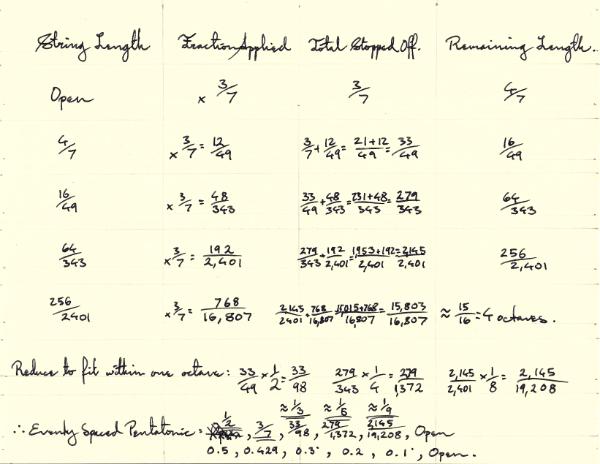 String Length Fraction Applied Total Stopped Off. Remaining Length.
Open × 3/7 3/7 4/7
4/7 × 3/7 = 12/49 3/7 + 12/49 = 21+12/49 = 33/49 16/49
16/49 × 3/7 = 48/343 33/49 + 48/343 = 231+48/343 = 279/343 64/343
64/343 × 3/7 = 192/2,401 279/343 + 192/2,401 = 1953+192/2,401 = 2,145/2,401 256/2,401
256/2401 × 3/7 = 768/16,807 2,145/2401 + 768/16,807 = 15015+768/16,807 = 15,803/16,807 ≈ 15/16 = 4 octaves.
Reduce to fit within one octave: 33/49 × 1/2 = 33/98 279/343 × 1/4 = 279/1372 2,145/2,401 × 1/8 = 2,145/19,208
≈ 1/3 ≈ 1/5 ≈ 1/9
∴ Evenly Spaced Pentatonic = 1/2, 3/7, 33/98, 279/1,372, 2145/19,208, Open
0.5, 0.429, 0.3˙, 0.2, 0.1˙, Open.